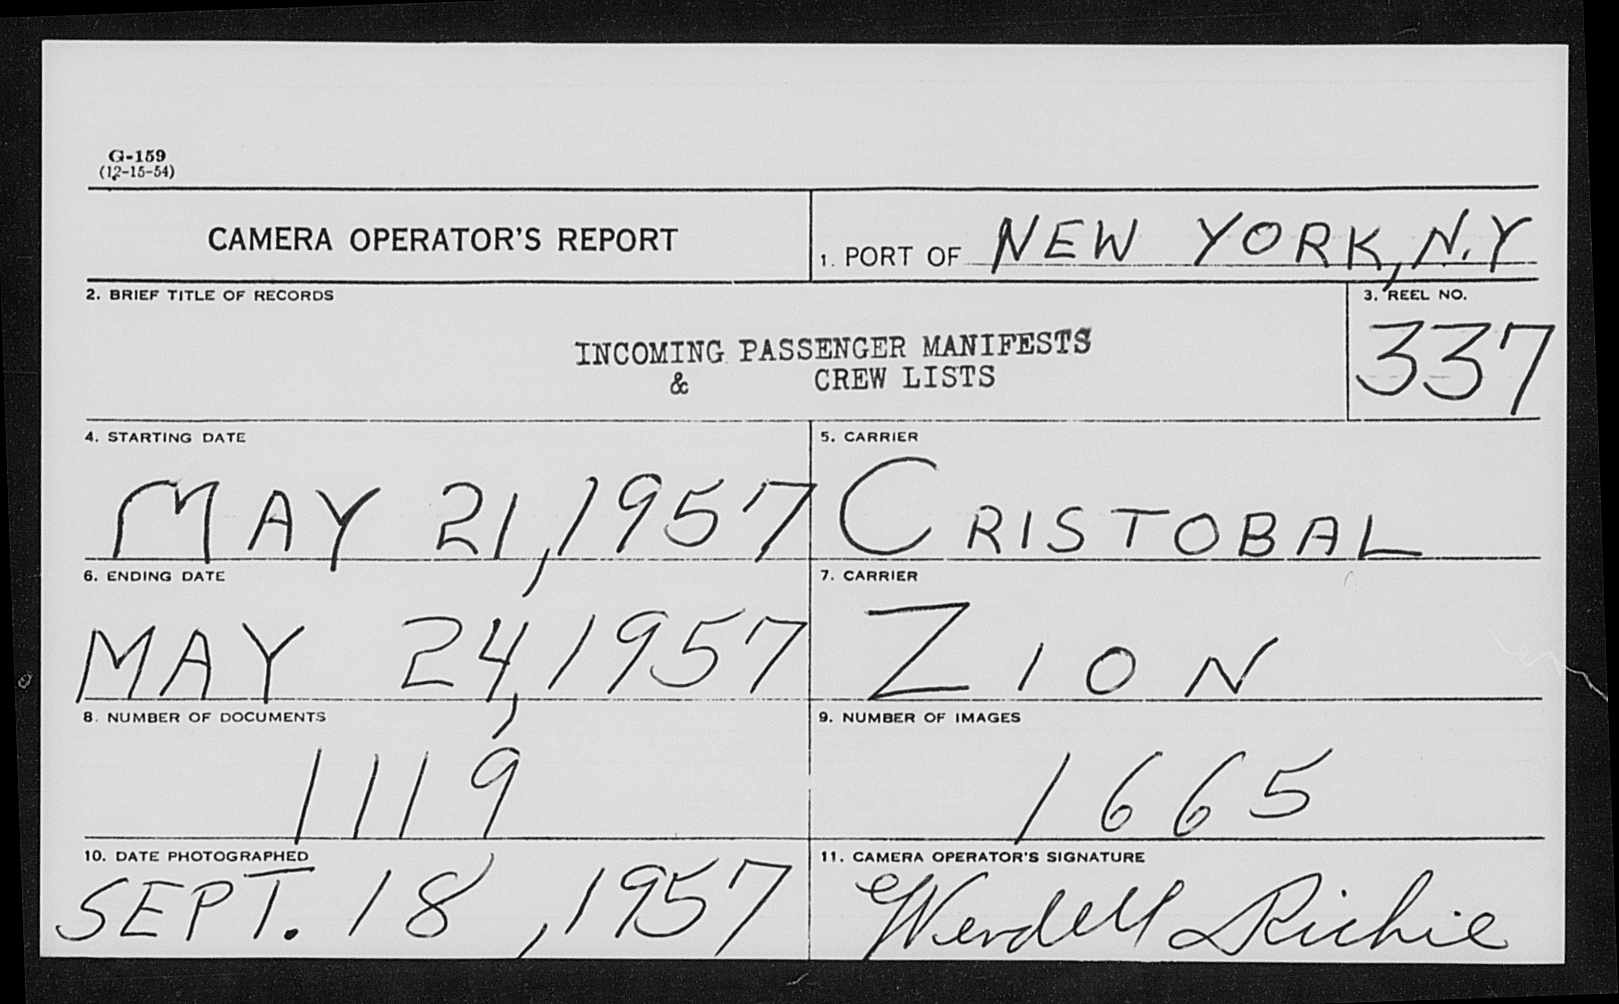 G-159
(12-15-54)
CAMERA OPERATOR'S REPORT
1. PORT OF NEW YORK, N.Y
2. BRIEF TITLE OF RECORDS
INCOMING PASSENGER MANIFESTS
& CREW LISTS
3. REEL NO.
337
4. STARTING DATE
MAY 21, 1957
5. CARRIER
CRISTOBAL
6. ENDING DATE
MAY 24, 1957
7. CARRIER
ZION
8. NUMBER OF DOCUMENTS
1119
9. NUMBER OF IMAGES
1665
10. DATE PHOTOGRAPHED
SEPT. 18, 1957
11. CAMERA OPERATOR'S SIGNATURE
Wendell Richie